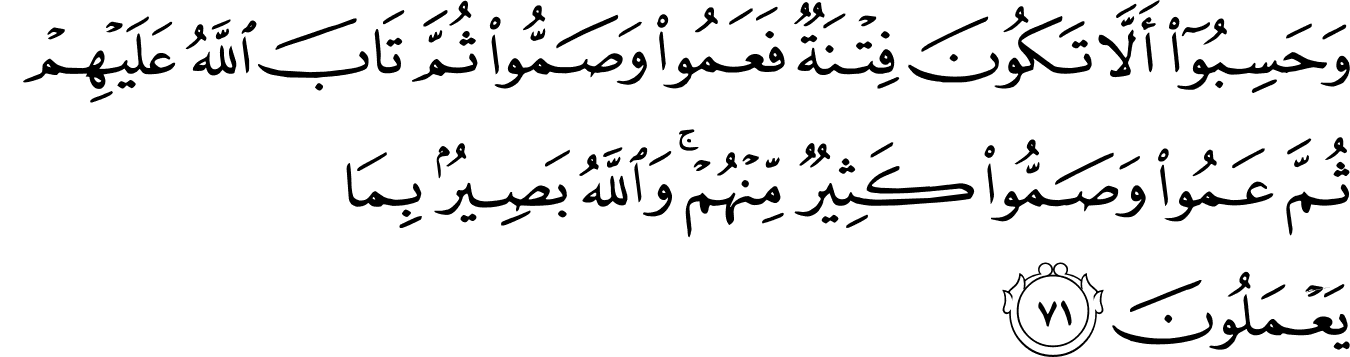 وَحَسِبُوٓا۟ أَلَّا تَكُونَ فِتْنَةٌ فَعَمُوا۟ وَصَمُّوا۟ ثُمَّ تَابَ ٱللَّهُ عَلَيْهِمْ
ثُمَّ عَمُوا۟ وَصَمُّوا۟ كَثِيرٌ مِّنْهُمْ ۚ وَٱللَّهُ بَصِيرٌۢ بِمَا
يَعْمَلُونَ ٧١